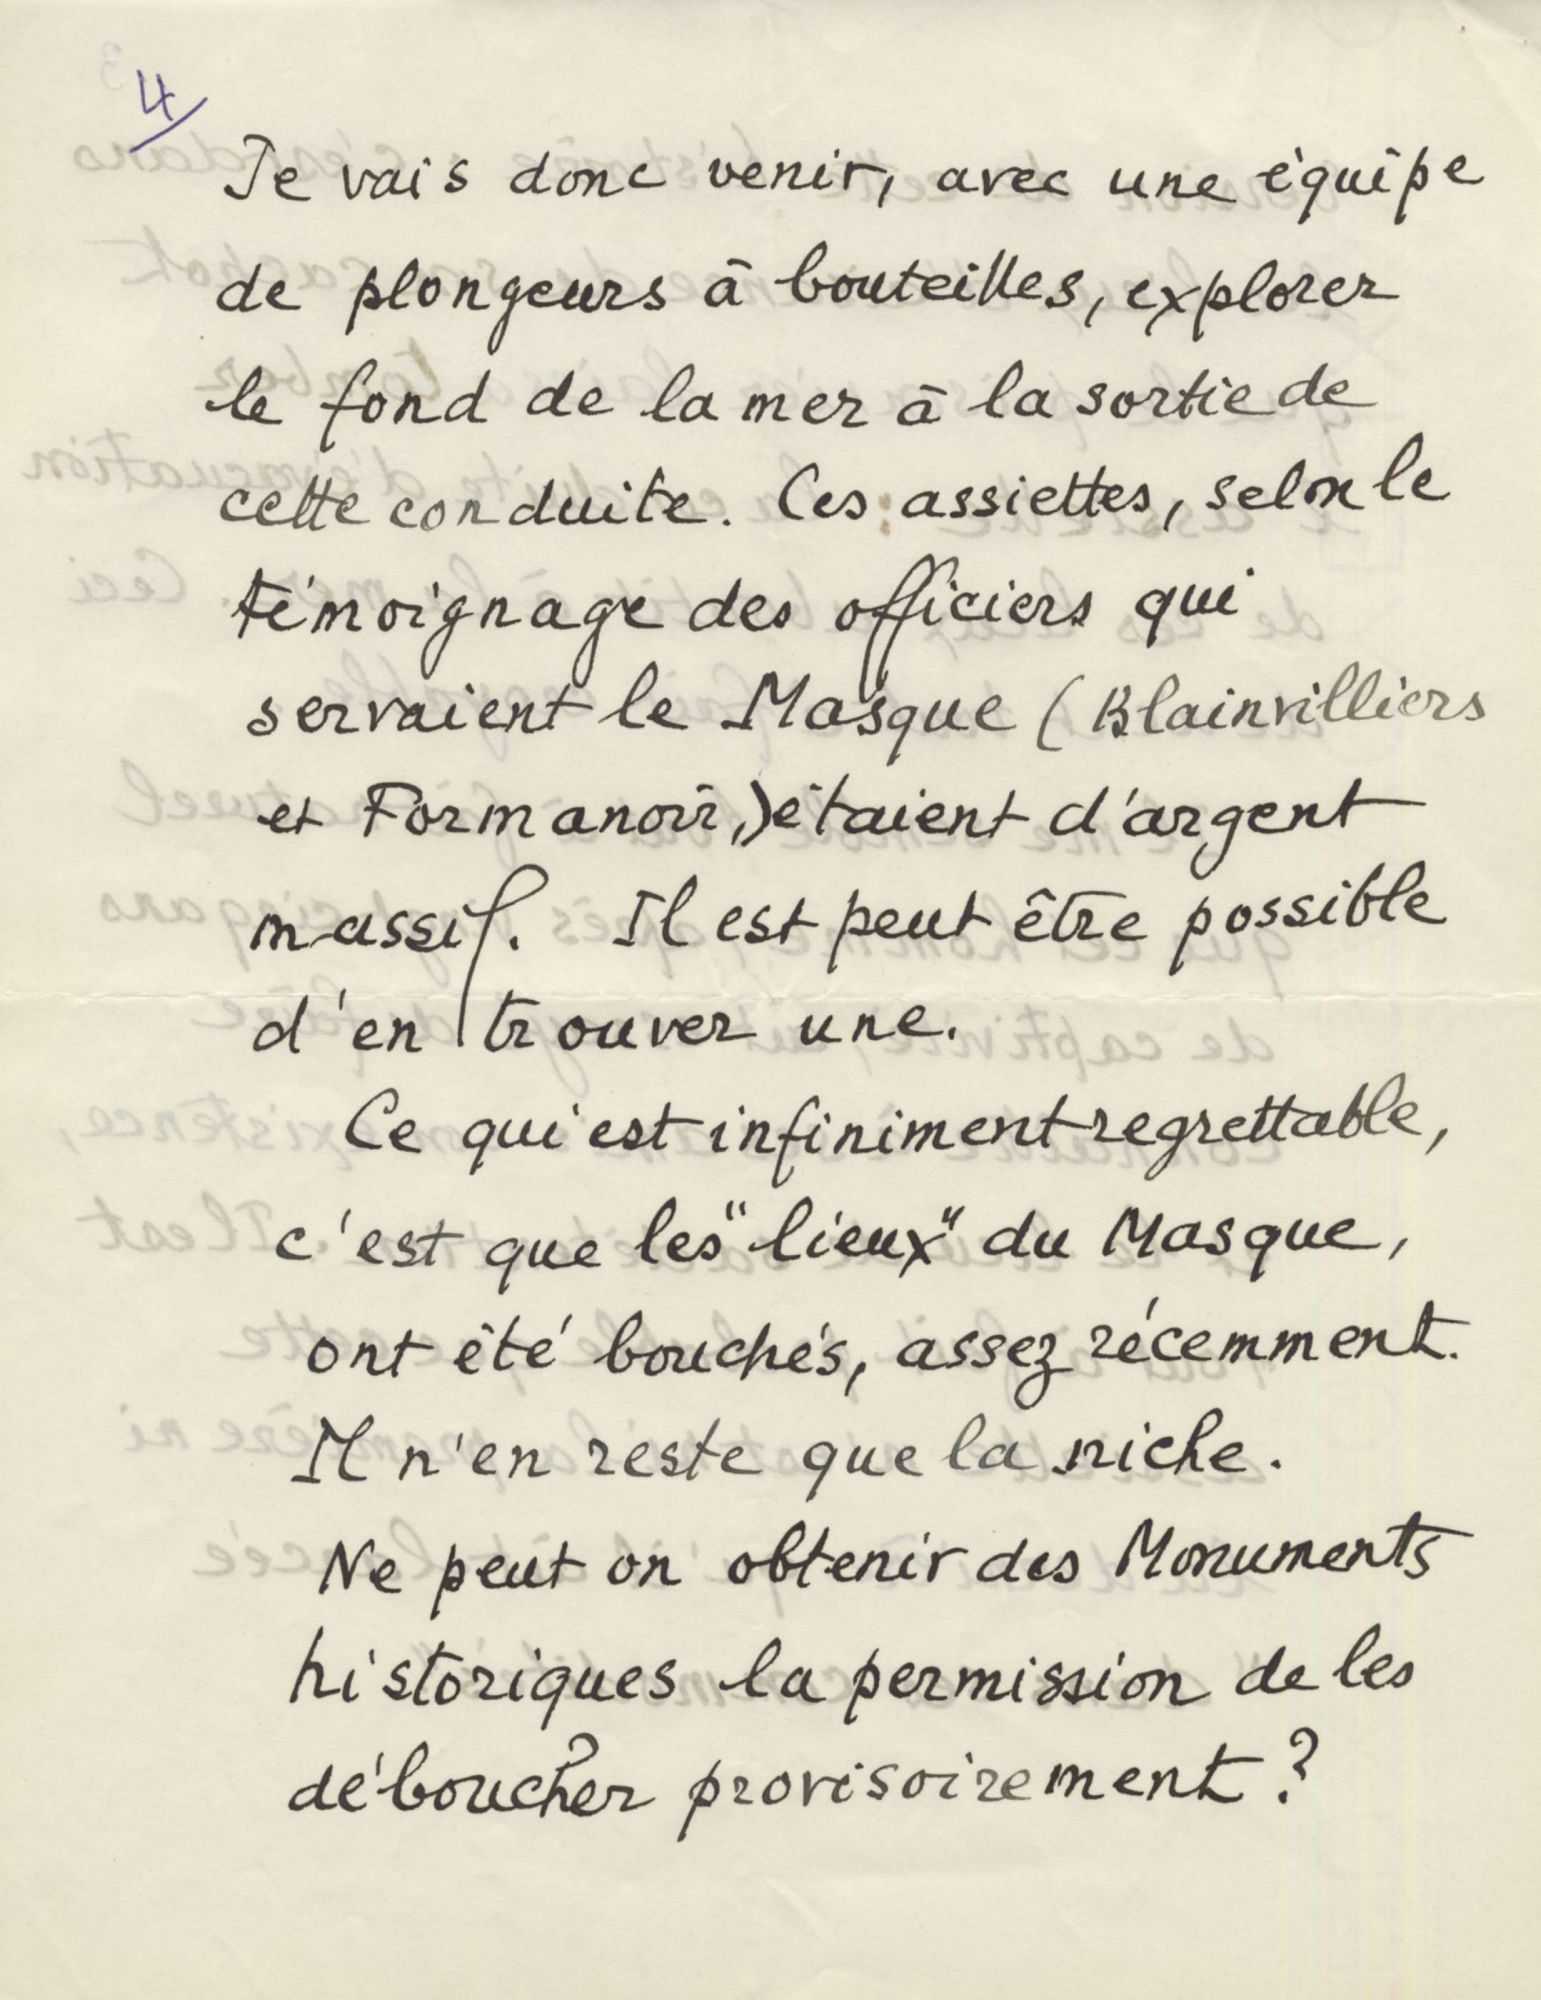 4
Je vais donc venir, avec une équipe
de plongeurs à bouteilles, explorer
le fond de la mer à la sortie de
cette conduite. Ces assiettes, selon le
témoignage des officiers qui
servaient le Masque (Blainvilliers
et Formanoir,) étaient d'argent
massif. Il est peut être possible
d'en trouver une.
Ce qui est infiniment regrettable,
c'est que les "lieux" du Masque,
ont été bouchés, assez récemment.
Il n'en reste que la niche.
Ne peut on obtenir des Monuments
historiques la permission de les
déboucher provisoirement ?